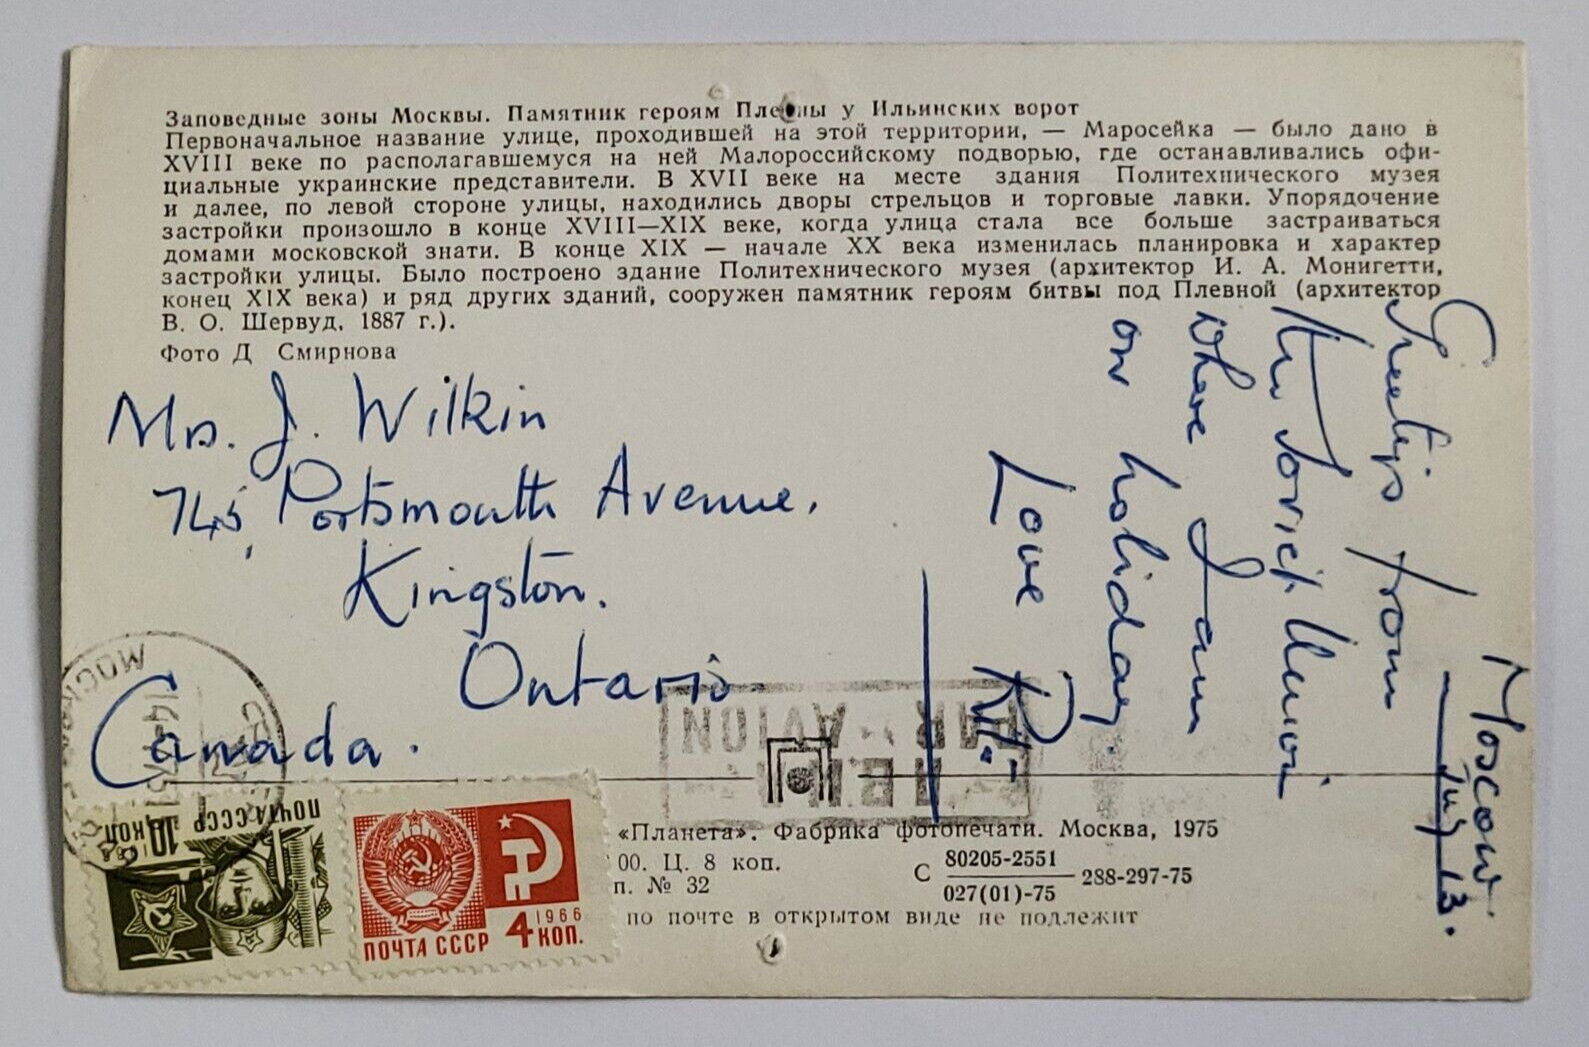 Заповедные зоны Москвы. Памятник героям Плевны у Ильинских ворот
Первоначальное название улице, проходившей на этой территории, — Маросейка — было дано в
XVIII веке по располагавшемуся на ней Малороссийскому подворью, где останавливались офи-
циальные украинские представители. В XVII веке на месте здания Политехнического музея
и далее, по левой стороне улицы, находились дворы стрельцов и торговые лавки. Упорядочение
застройки произошло в конце XVIII—XIX веке, когда улица стала все больше застраиваться
домами московской знати. В конце XIX — начале XX века изменилась планировка и характер
застройки улицы. Было построено здание Политехнического музея (архитектор И. А. Монигетти,
конец XIX века) и ряд других зданий, сооружен памятник героям битвы под Плевной (архитектор
В. О. Шервуд, 1887 г.).
Фото Д Смирнова
Moscow.
July 13.
Greetings from
the Soviet Union
where I am
on holiday.
Love
Mrs. J. Wilkin
745, Portsmouth Avenue.
Kingston.
Ontario
Canada.
МОСКВА
PAR AVION
АВИА
ПОЧТА СССР
10 КОП.
1966
4 КОП.
ПОЧТА СССР
«Планета». Фабрика фотопечати. Москва, 1975
00. Ц. 8 коп.
п. № 32
С 80205-2551
027(01)-75 288-297-75
по почте в открытом виде не подлежит